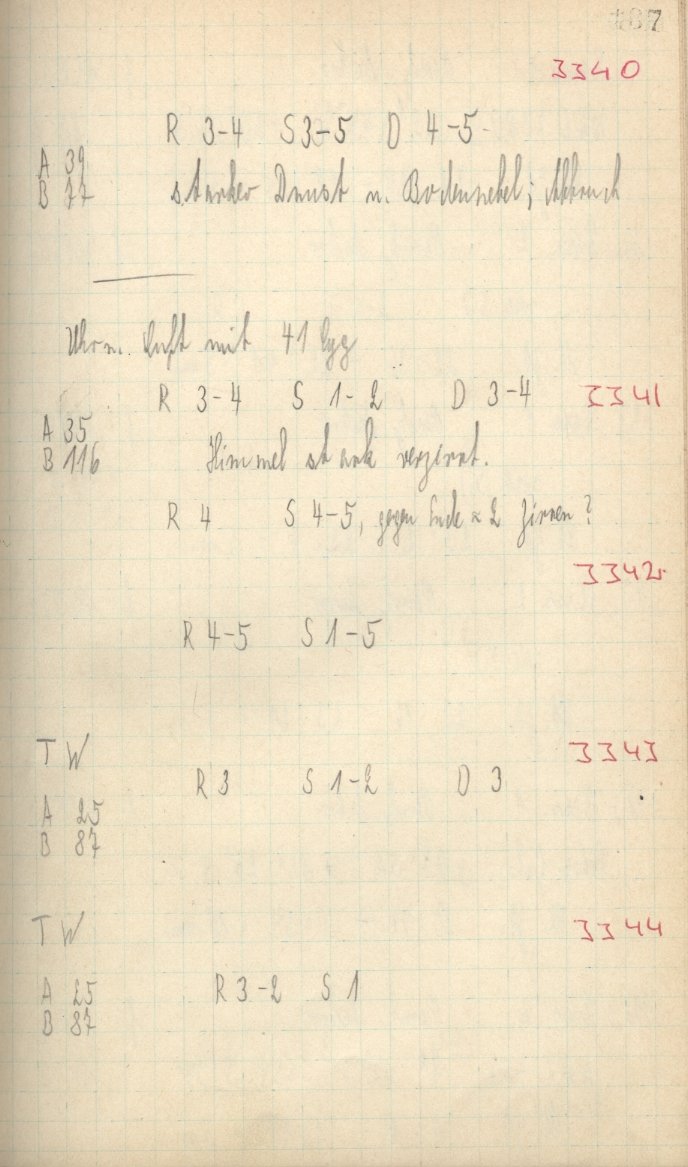 187
3340
R 3-4 S 3-5 D 4-5
A 39
B 77
starker Dunst u. Bodennebel; Abbruch
Uhrn. Luft mit 41 Cyg
R 3-4 S 1-2 D 3-4 3341
A 35
B 116
Himmel stark verzirrt.
R 4 S 4-5, gegen Ende ≈ 2 Zirren?
3342
R 4-5 S 1-5
TW 3343
R 3 S 1-2 D 3
A 25
B 87
TW 3344
A 25
B 87
R 3-2 S 1